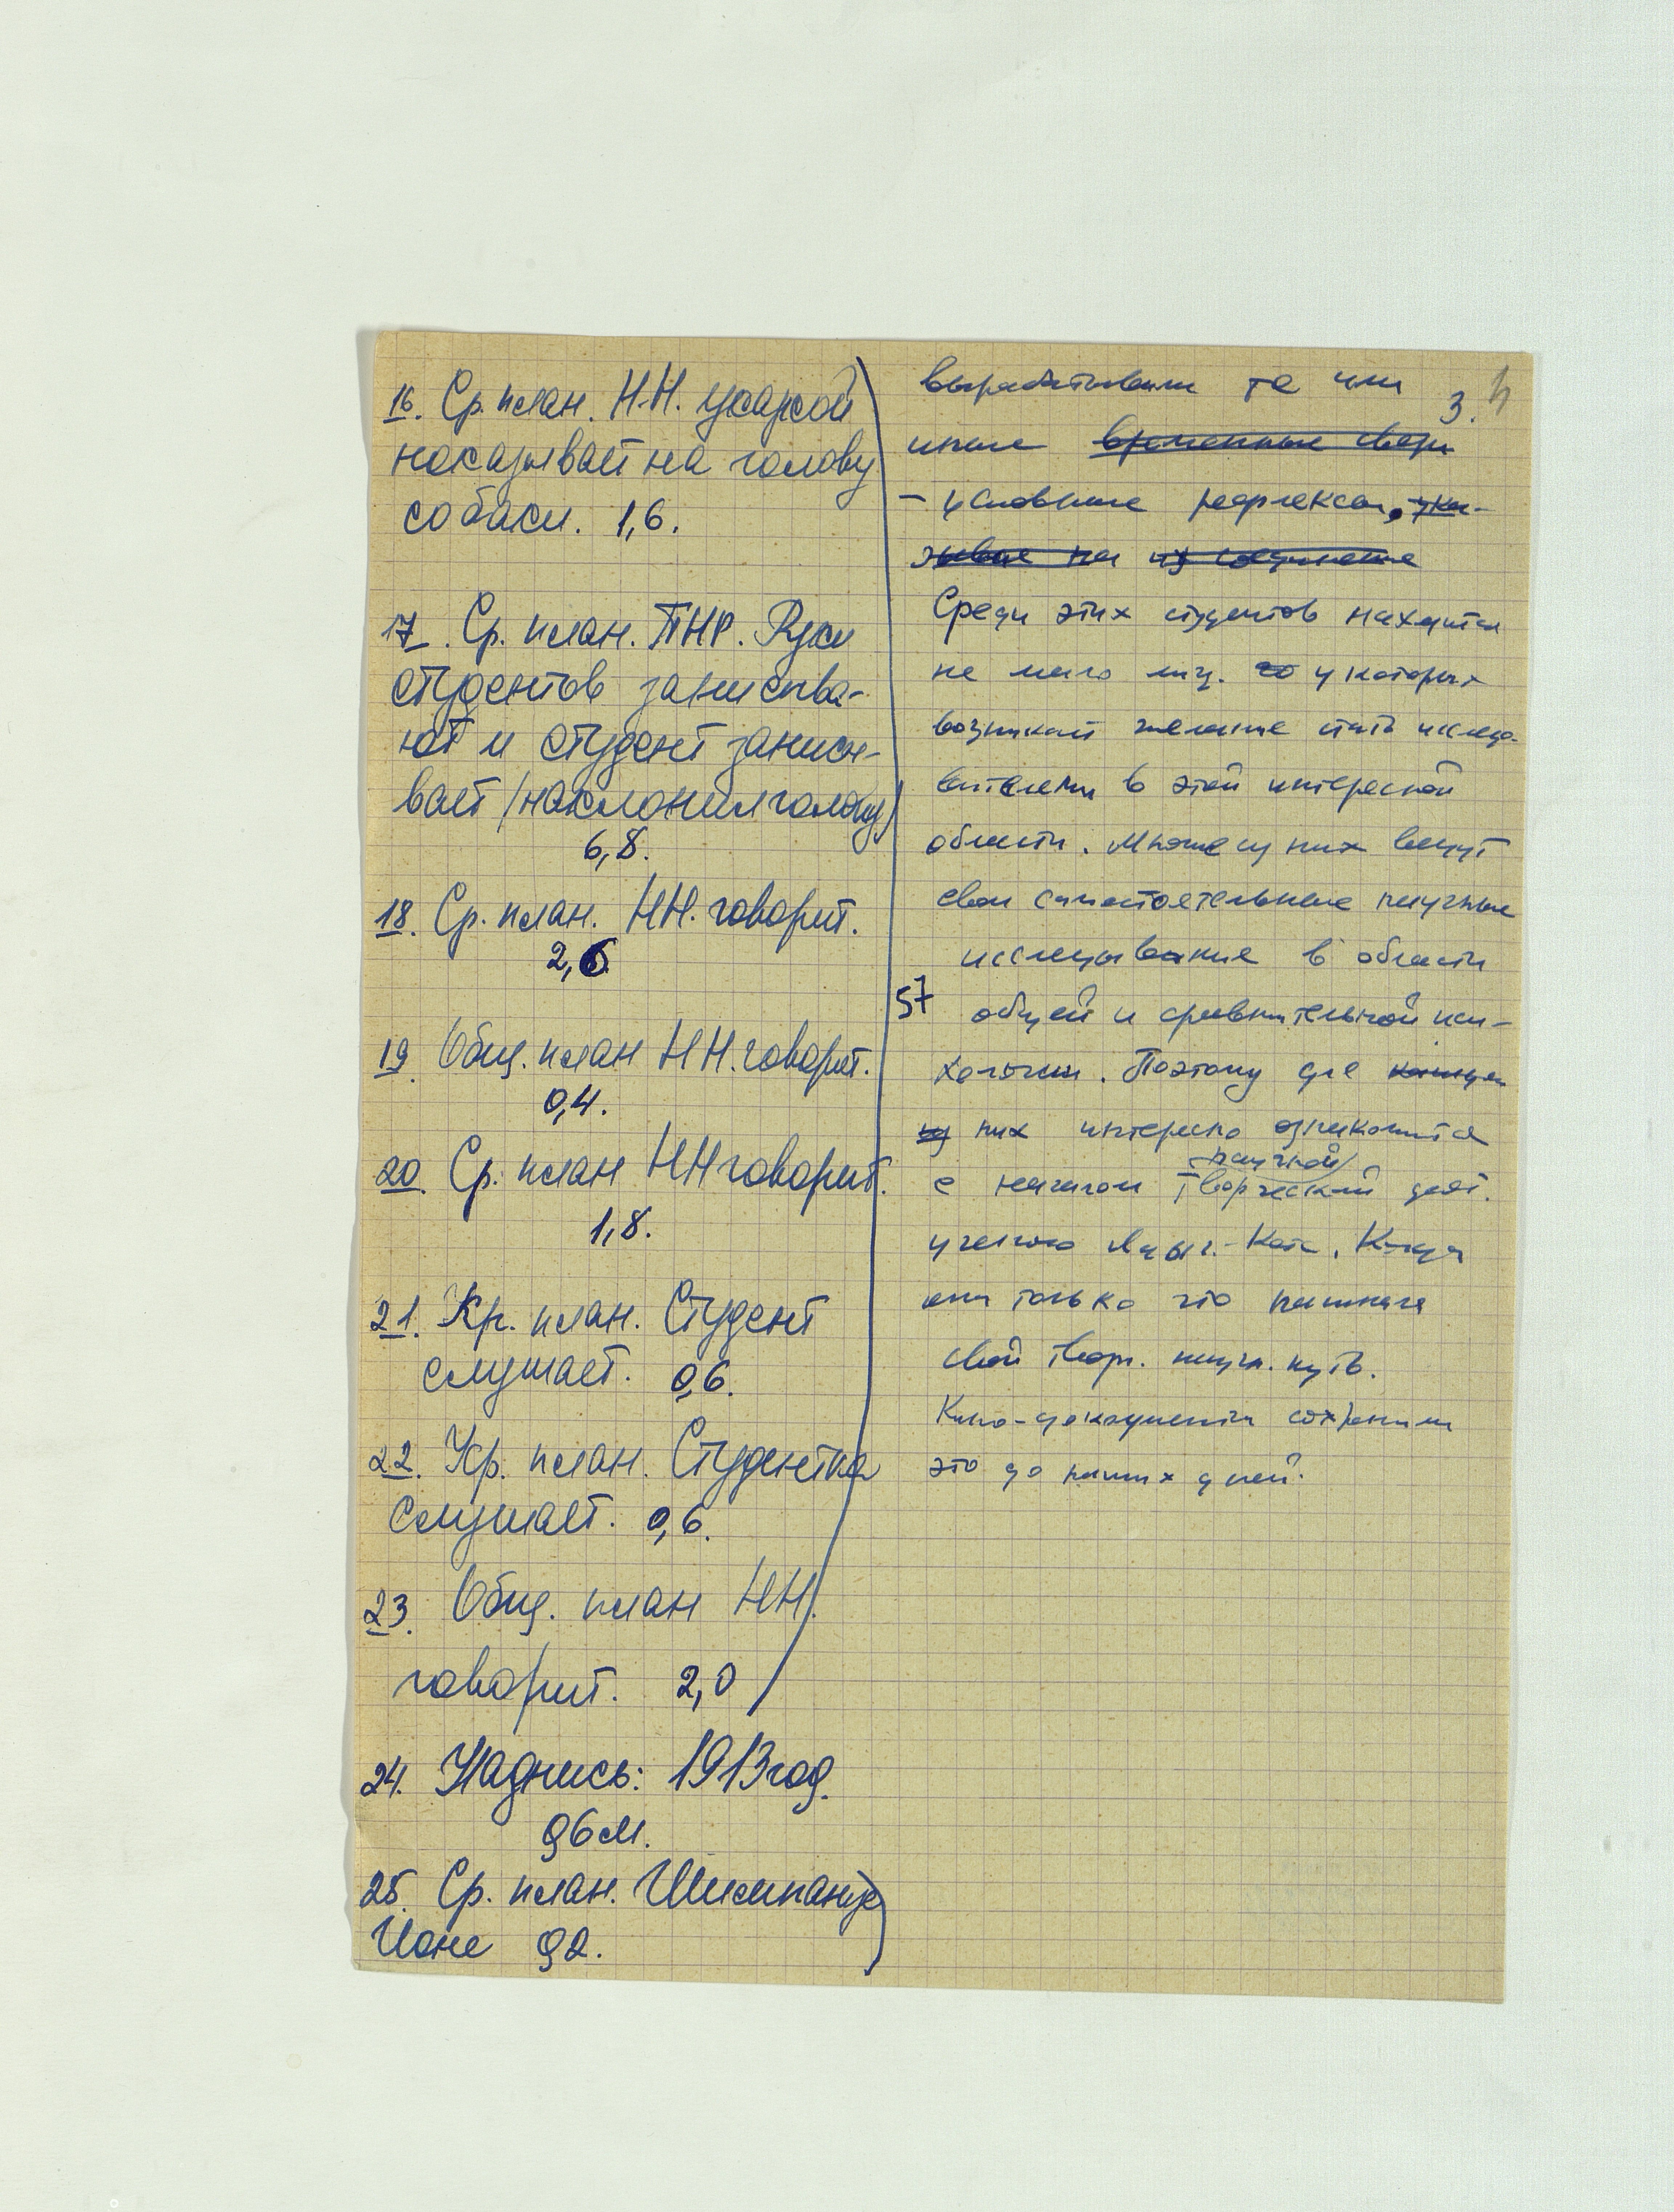 16. Ср. план. Н.Н. указкой
показывает на голову
собаки. 1,6.
17. Ср. план. ПНР. Руки
студентов записыва-
ют и студент записы-
вает /наклонил голову/
6,8.
18. Ср. план. НН. говорит.
2,6
19. Общ. план НН. говорит.
0,4.
20. Ср. план НН говорит.
1,8.
21. Кр. план. Студент
слушает. 0,6.
22. Кр. план. Студентка
слушает. 0,6.
23. Общ. план НН.
говорит. 2,0
24. Надпись: 1913 год.
0,6 м.
25. Ср. план. Шимпанзе
Иони 0,2.
3.
вырабатывали те или
иные временные связи
- условные рефлексы, ука-
зывая на их соединение
Среди этих студентов находится
не мало лиц. у которых
возникает желание стать исследо-
вателями в этой интересной
области. Многие из них ведут
свои самостоятельные научные
исследования в области
57 общей и сравнительной пси-
хологии. Поэтому для каждого
из них интересно ознакомится
научной/
с началом творческой деят.
ученого Лады.-Котс. Когда
она только что начинала
свой творч. научн. путь.
Кино-документы сохранили
это до наших дней.